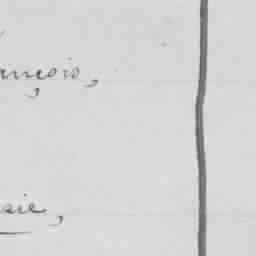 ançois,
sie,